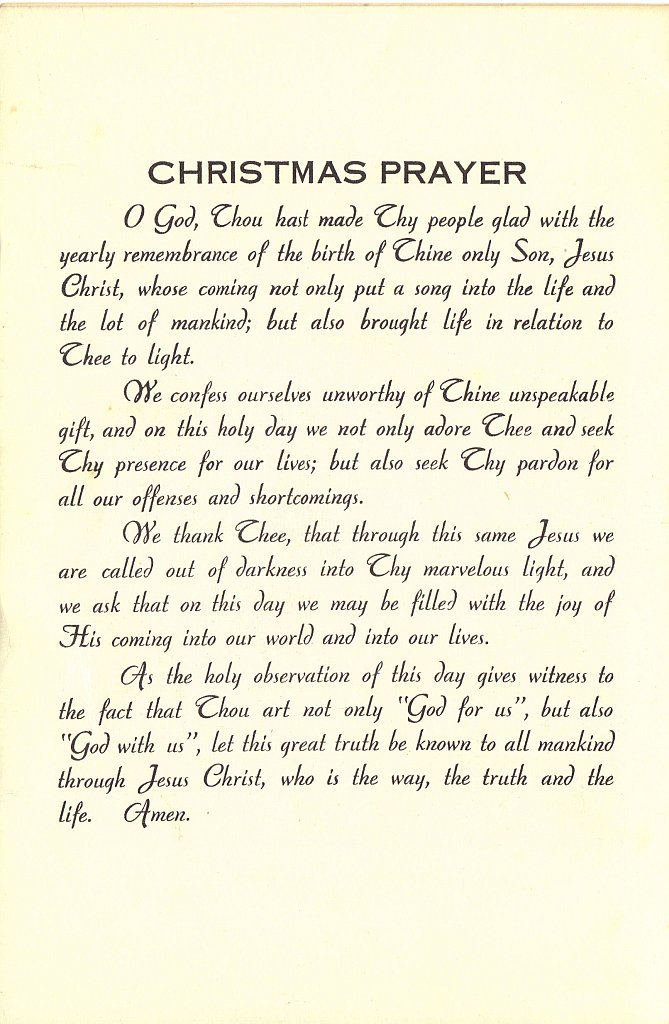 CHRISTMAS PRAYER
O God, Thou hast made Thy people glad with the
yearly remembrance of the birth of Thine only Son, Jesus
Christ, whose coming not only put a song into the life and
the lot of mankind; but also brought life in relation to
Thee to light.
We confess ourselves unworthy of Thine unspeakable
gift, and on this holy day we not only adore Thee and seek
Thy presence for our lives; but also seek Thy pardon for
all our offenses and shortcomings.
We thank Thee, that through this same Jesus we
are called out of darkness into Thy marvelous light, and
we ask that on this day we may be filled with the joy of
His coming into our world and into our lives.
As the holy observation of this day gives witness to
the fact that Thou art not only "God for us", but also
"God with us", let this great truth be known to all mankind
through Jesus Christ, who is the way, the truth and the
life. Amen.